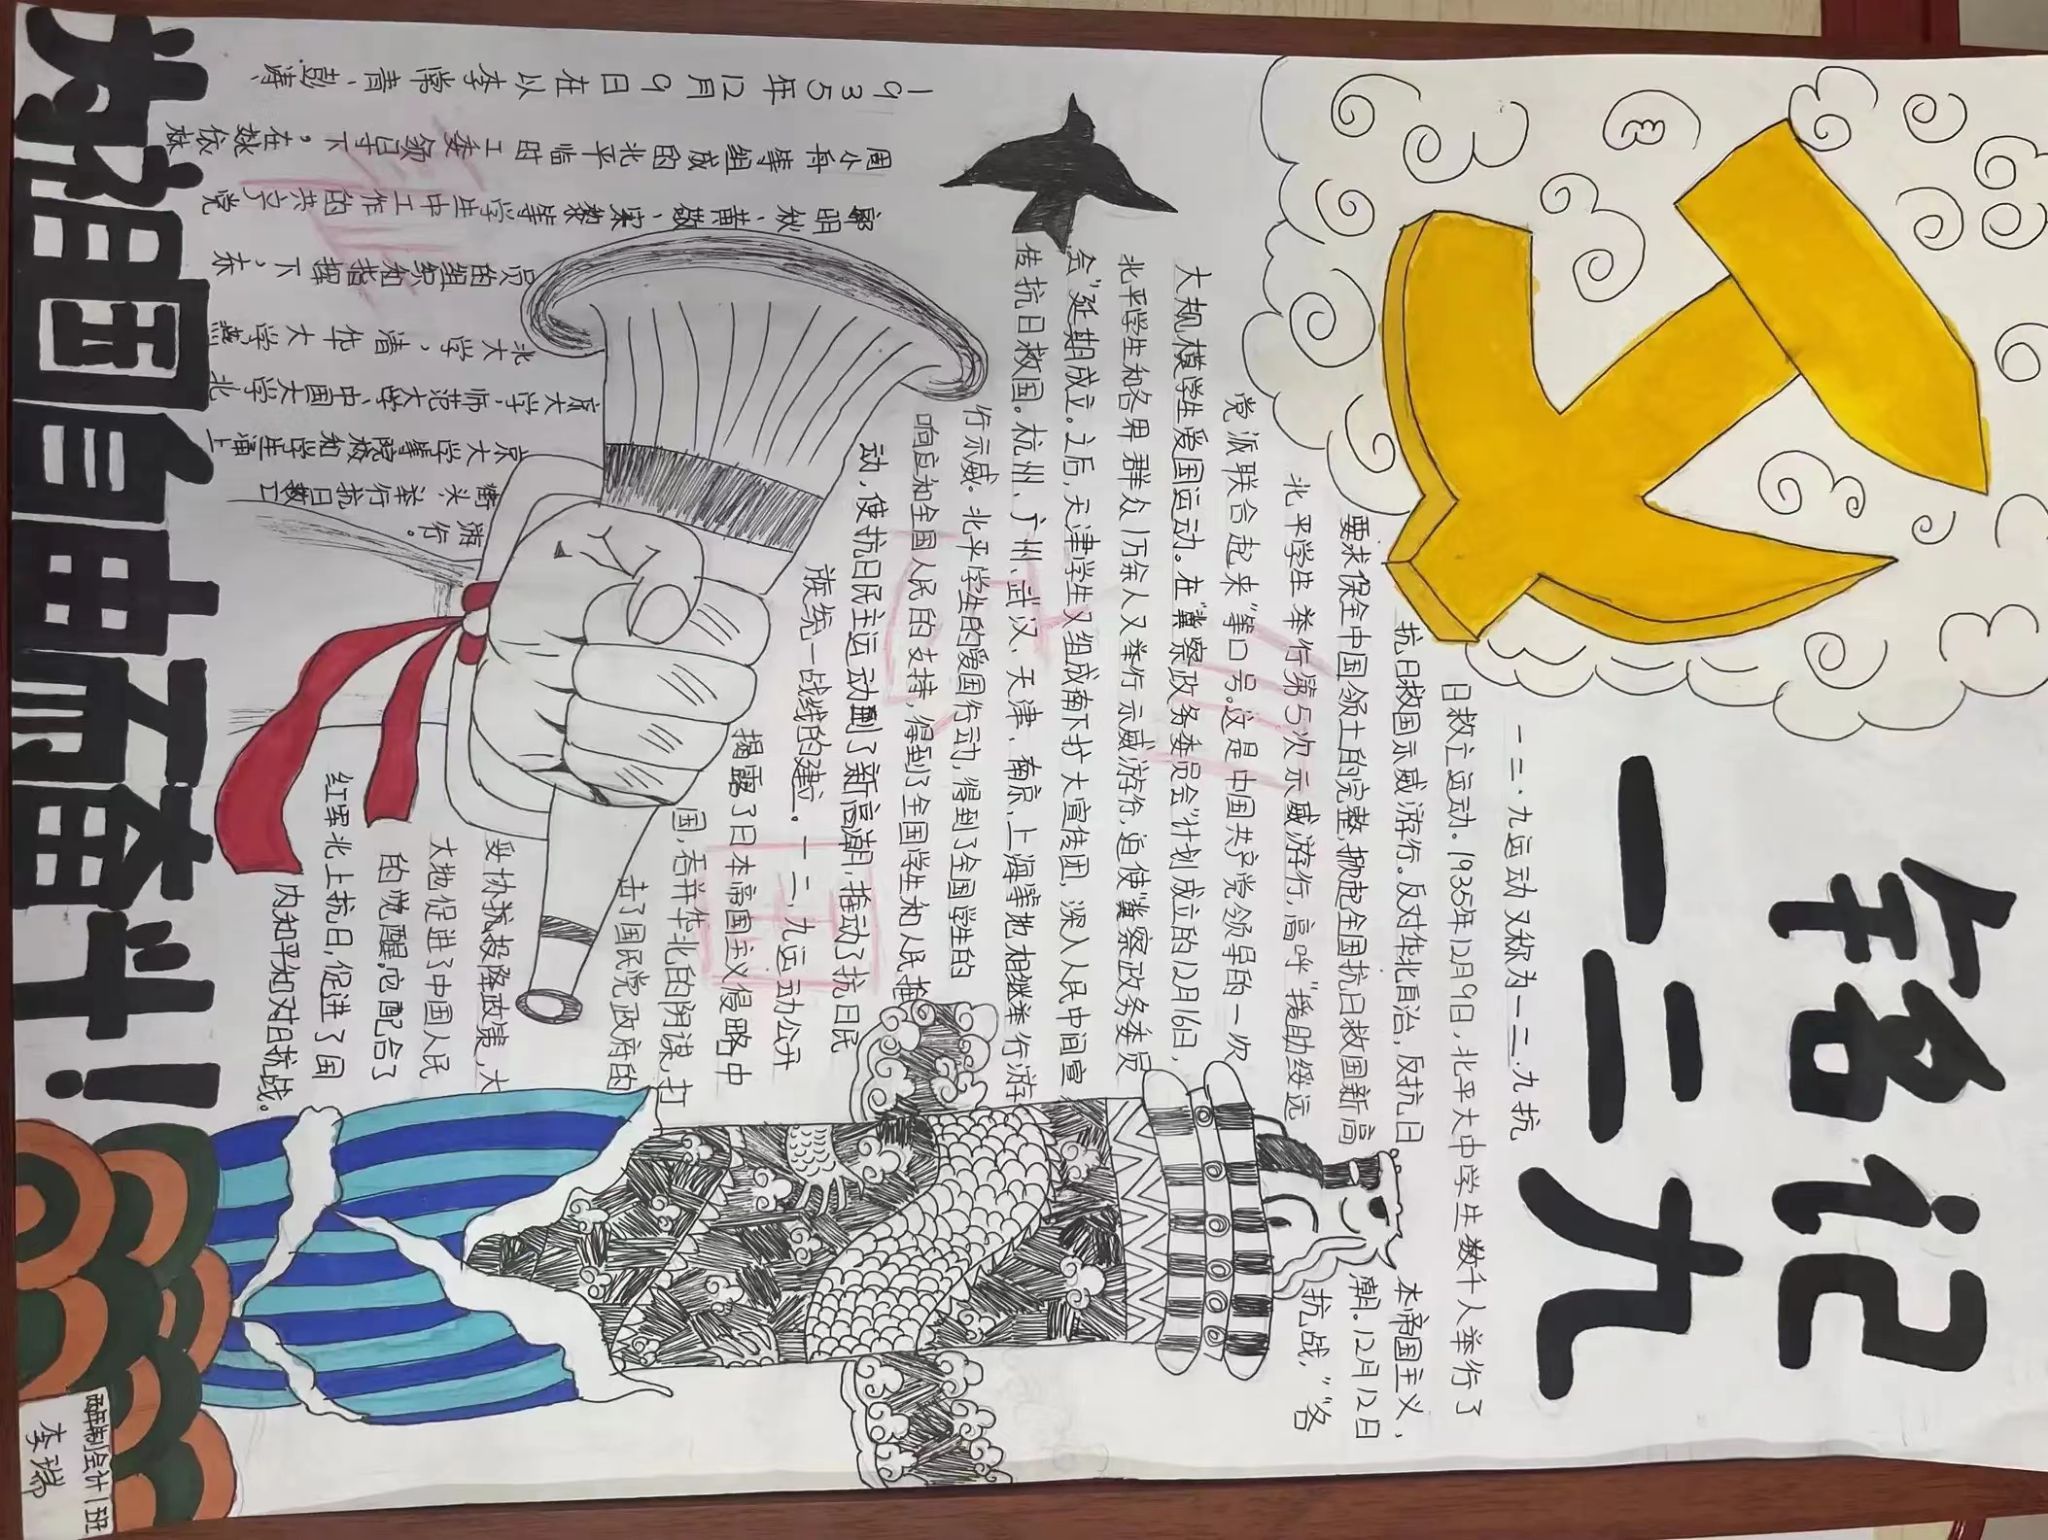 铭记
一二九
一二·九运动又称为一二.九抗
日救亡运动。1935年12月9日，北平大中学生数千人举行了
抗日救国示威游行。反对华北自治，反抗日本帝国主义，
要求保全中国领土的完整，掀起全国抗日救国新高潮。12月12日
北平学生举行第5次示威游行，高呼“援助绥远抗战，”“各
党派联合起来”等口号。这是中国共产党领导的一次
大规模学生爱国运动。在“冀察政务委员会”计划成立的12月16日，
北平学生和各界群众1万余人又举行示威游行，迫使“冀察政务委员
会”延期成立。之后，天津学生又组成南下扩大宣传团，深入人民中间宣
传抗日救国。杭州、广州、武汉、天津、南京、上海等地相继举行游
行示威。北平学生的爱国行动，得到了全国学生的
响应和全国人民的支持，得到了全国学生和人民推
动，使抗日民主运动到了新高潮，推动了抗日民
族统一战线的建立。一二·九运动公开
揭露了日本帝国主义侵略中
国，吞并华北的阴谋，打
击了国民党政府的
妥协投降政策，大
大地促进了中国人民
的觉醒。它配合了
红军北上抗日，促进了国
内和平和对日抗战。
1935年12月9日在以李常青、彭涛、
周小舟等组成的北平临时工委领导下，在姚依林
郭明秋、黄敬、宋黎等学生中工作的共产党
员的组织和指挥下，东
北大学，清华大学燕
京大学、师范大学、中国大学北
京大学等院校和学生涌上
街头，举行抗日救亡
游行。
为祖国自由而奋斗！
制会计1班
李瑞